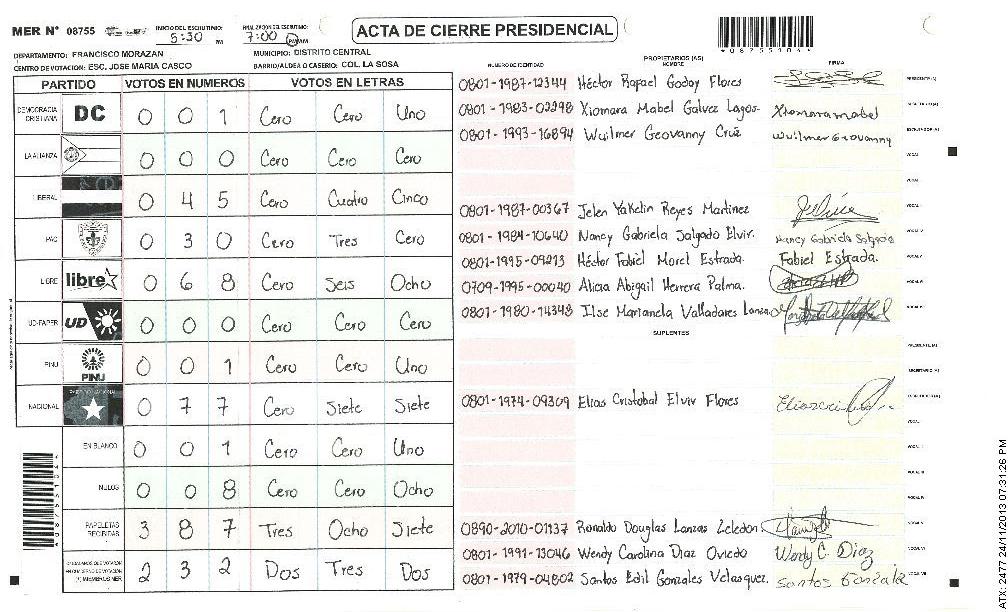 MER N° 08755
INICIO DEL ESCRUTINIO: 5:30 PM
FINALIZACION DEL ESCRUTINIO: 7:00 PM
ACTA DE CIERRE PRESIDENCIAL
08755104
DEPARTAMENTO: FRANCISCO MORAZAN
MUNICIPIO: DISTRITO CENTRAL
CENTRO DE VOTACION: ESC. JOSE MARIA CASCO
BARRIO/ALDEA O CASERIO: COL. LA SOSA
PARTIDO VOTOS EN NUMEROS VOTOS EN LETRAS
DEMOCRACIA CRISTIANA DC 0 0 1 Cero Cero Uno
LA ALIANZA 0 0 0 Cero Cero Cero
LIBERAL 0 4 5 Cero Cuatro Cinco
PAC 0 3 0 Cero Tres Cero
LIBRE libre 0 6 8 Cero Seis Ocho
UD-FAPER UD 0 0 0 Cero Cero Cero
PINU PINU 0 0 1 Cero Cero Uno
NACIONAL 0 7 7 Cero Siete Siete
EN BLANCO 0 0 1 Cero Cero Uno
NULOS 0 0 8 Cero Cero Ocho
PAPELETAS RECIBIDAS 3 8 7 Tres Ocho Siete
2 3 2 Dos Tres Dos
NUMERO DE IDENTIDAD PROPIETARIOS (AS) NOMBRE FIRMA
0801-1987-12344 Héctor Rafael Godoy Flores PRESIDENTE(A)
0801-1983-02298 Xiomara Mabel Galvez Lagos Xiomara mabel SECRETARIO(A)
0801-1993-16894 Wuilmer Geovanny Cruz Wuilmer Geovanny ESCRUTADOR(A)
0801-1987-00367 Jelen Yakelin Reyes Martinez
0801-1984-10640 Nancy Gabriela Salgado Elvir. Nancy Gabriela Salgado
0801-1995-09213 Héctor Fabiel Morel Estrada. Fabiel Estrada.
0709-1995-00040 Alicia Abigail Herrera Palma.
0801-1980-14348 Ilse Marianela Valladares Lanza
SUPLENTES
0801-1974-09309 Elias Cristobal Elvir Flores
0890-2010-01137 Ronaldo Douglas Lanzas Zeledon
0801-1991-13046 Wendy Carolina Diaz Oviedo Wendy C. Diaz
0801-1979-04802 Santos Edil Gonzales Velasquez. Santos Gonzale
ATX 2477 24/11/2013 07:31:26 PM